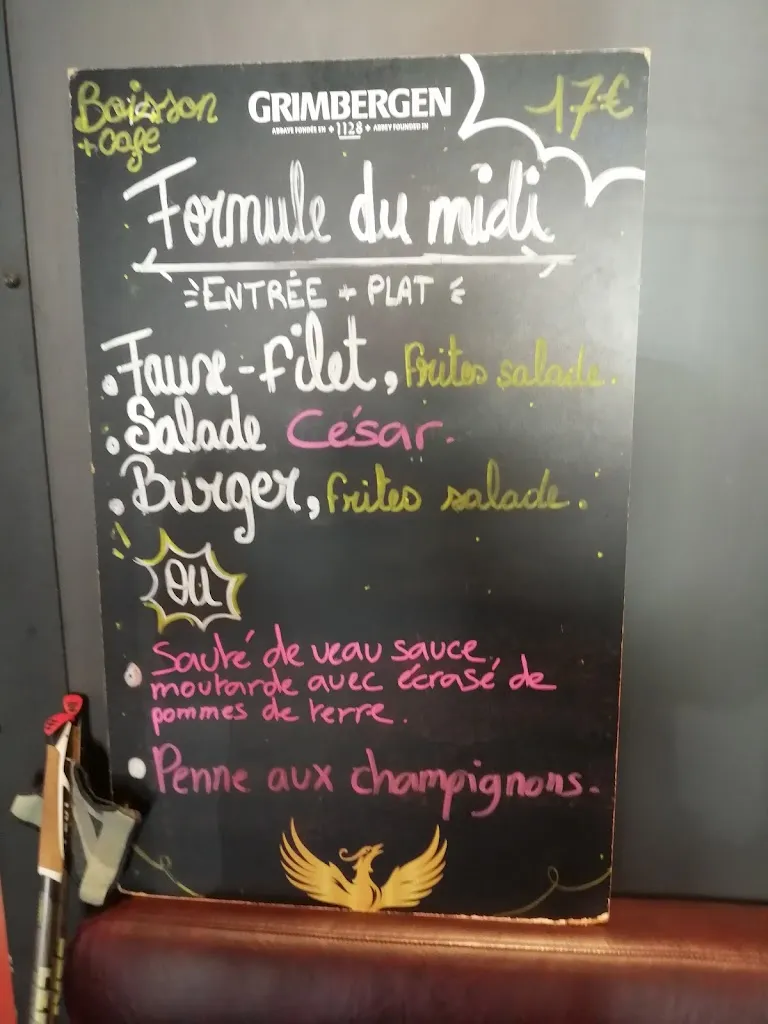 Boisson
+ Café
GRIMBERGEN
ABBAYE FONDÉE EN + 1128 + ABBEY FOUNDED IN
17€
Formule du midi
ENTRÉE + PLAT
. Faux-filet, frites salade.
. Salade César.
. Burger, frites salade.
OU
Sauté de veau sauce
moutarde avec écrasé de
pommes de terre.
Penne aux champignons.